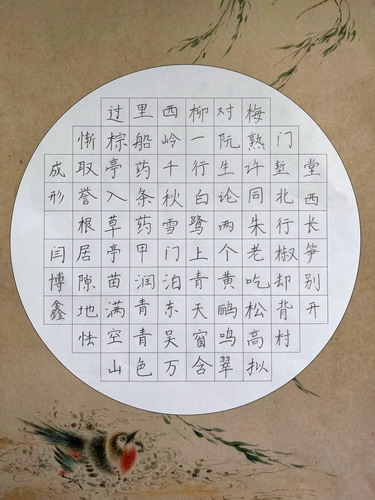 堂西长笋别开
门堑北行椒却背村
梅熟许同朱老吃松高拟
对阮生论两个黄鹂鸣翠
柳一行白鹭上青天窗含
西岭千秋雪门泊东吴万
里船药条药甲润青青色
过棕亭入草亭苗满空山
惭取誉根居隙地怯
成形
闫博鑫